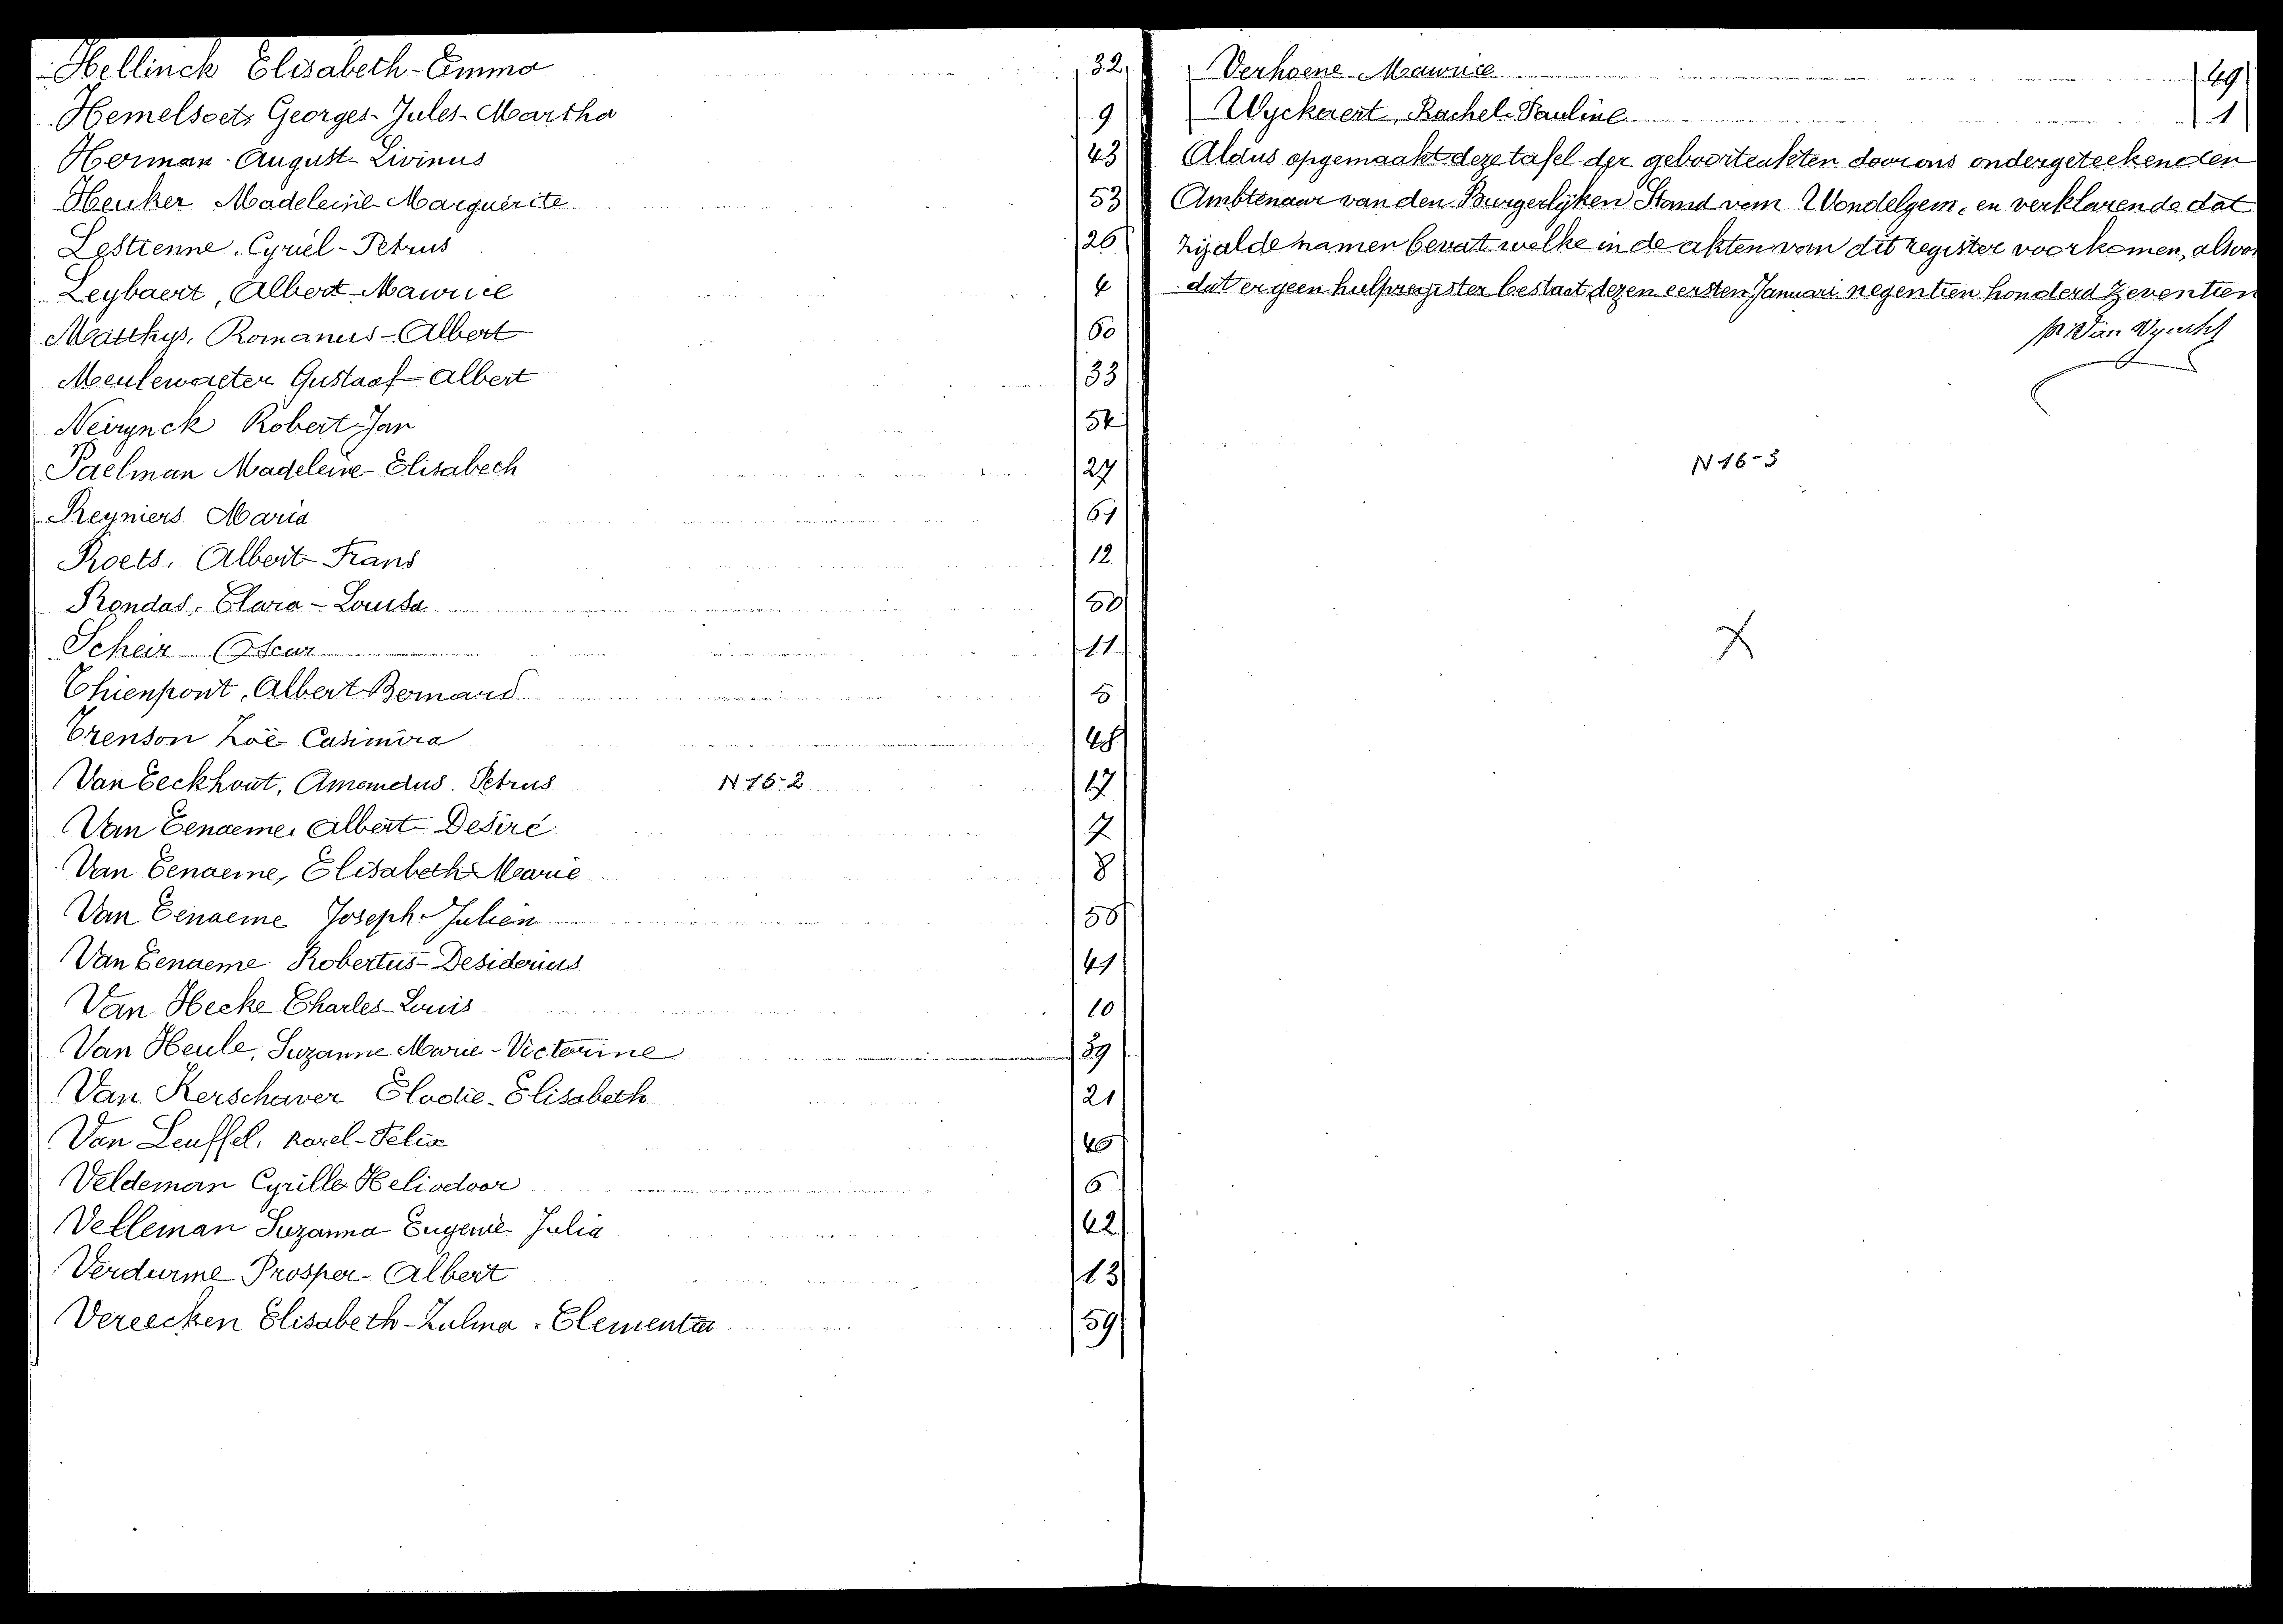 Hellinck Elisabeth-Emma 32
Hemelsoets Georges-Jules-Martha 9
Herman August-Livinus 43
Heuker Madeleine-Marguerite 53
Lestienne, Cyriel-Petrus 26
Leybaert, Albert-Maurice 4
Matthys, Romanus-Albert 60
Meulewaeter Gustaaf-Albert 33
Neirynck Robert-Jan 54
Paelman Madeleine-Elisabeth 27
Reyniers Maria 61
Roets, Albert-Frans 12
Rondas, Clara-Louisa 50
Scheir Oscar 11
Thienpont, Albert-Bernard 5
Trenson Zoë Casimira 48
Van Eeckhout, Amandus Petrus N 16-2 17
Van Eenaeme, Albert-Desiré 7
Van Eenaeme, Elisabeth-Marie 8
Van Eenaeme Joseph-Julien 58
Van Eenaeme Robertus-Desiderius 41
Van Hecke Charles-Louis 10
Van Heule, Suzanne-Marie-Victorine 39
Van Kerschaver Elodie-Elisabeth 21
Van Leuffel, Karel-Felix 40
Veldeman Cyrille Heliodoor 6
Velleman Suzanna-Eugenie Julia 42
Verdurme Prosper-Albert 13
Vereecken Elisabeth-Zulma-Clementia 59
Verhoene Maurice 49
Wyckaert, Rachel-Pauline 1
Aldus opgemaakt deze tafel der geboorteakten door ons ondergeteekenden
Ambtenaar van den Burgerlyken Stand van Wondelgem, en verklarende dat
zij al de namen bevat welke in de akten van dit register voorkomen, alsoo
dat er geen hulpregister bestaat dezen eersten Januari negentien honderd zeventien
N 16-3